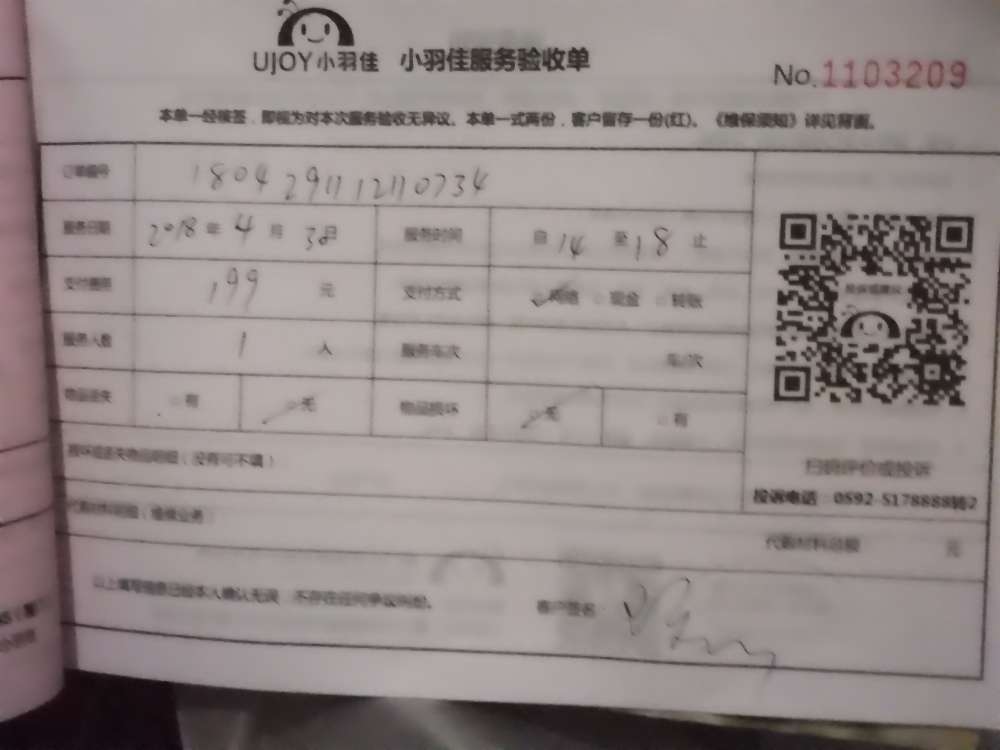 UJOY小羽佳 小羽佳服务验收单
No.1103209
本单一经核签，即视为对本次服务验收无异议。本单一式两份，客户留存一份(红)。《维保须知》详见背面。
订单编号 1804291112110734
服务日期 2018年4月30日 服务时间 自14至18止
支付费用 199元 支付方式 网络 现金 转账
服务人数 1人 服务车次 车/次
物品丢失 有 无 物品损坏 无 有
损坏或丢失物品明细（没有可不填）
扫码评价或投诉
投诉电话：0592-5178888转2
代购材料明细（维保业务）
代购材料总额 元
以上填写信息已经本人确认无误，不存在任何争议纠纷。 客户签名：